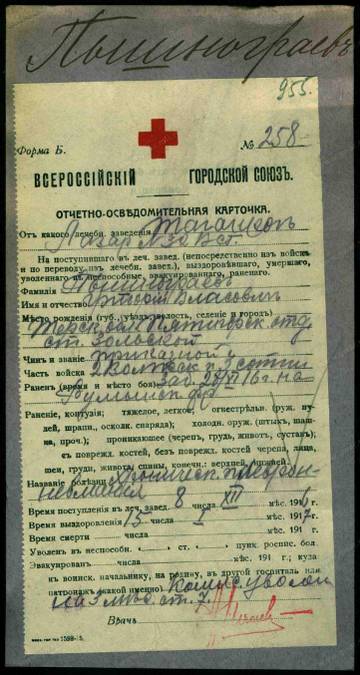 Пышнограевъ
955.
Форма Б. № 258
ВСЕРОССІЙСКІЙ ГОРОДСКОЙ СОЮЗЪ.
ОТЧЕТНО-ОСВѢДОМИТЕЛЬНАЯ КАРТОЧКА.
Отъ какого лечебн. заведенія
Лазар. №
На поступившаго въ леч. завед. (непосредственно изъ войскъ
и по переводу изъ лечебн. завед.), выздоровѣвшаго, умершаго,
уволеннаго въ неспособные, эвакуированнаго, раненаго.
Фамилія Пышнограевъ
Имя и отчество Григорій Власовичъ
Мѣсто рожденія (губ., уѣздъ, волость, селеніе и городъ)
Терск. обл. Пятигорск. отд.
ст. Зольской
Чинъ и званіе приказной
Часть войска 2 Волжск. п. 4 сотни
Раненъ (время и мѣсто боя) Заб. 20/XI 16 г. на
Румынск. фр.
Раненіе, контузія: тяжелое, легкое, огнестрѣльн. (руж. пу-
лей, шрапн., осколк. снаряда); холодн. оруж. (штых, шаш-
ка, проч.); проникающее (черепъ, грудь, животъ, суставъ);
съ поврежд. костей, безъ поврежд. костей черепа, лица,
шеи, груди, живота, спины, конечн.: верхней, нижней.
Названіе болѣзни Хроническ.
Время поступленія въ леч. завед. 8 числа XII мѣс. 1916 г.
Время выздоровленія 15 числа I мѣс. 1917 г.
Время смерти числа мѣс. 191 г.
Уволенъ въ неспособн. ст. пунк. роспис. бол.
Эвакуированъ числа мѣс. 191 г. куда
къ воинск. начальнику, на родину, въ другой госпиталь или
патронажъ (какой именно) Комис. уволен
на 3 мѣс. ст. 7.
Врачъ